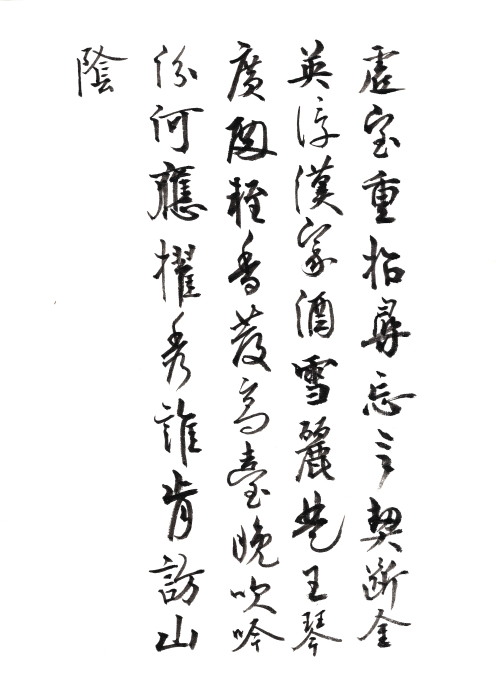 虛室重招尋忘言契斷金
英浮漢家酒雪麗楚王琴
廣殿輕香發高臺晚吹吟
汾河應擢秀誰肯訪山
陰